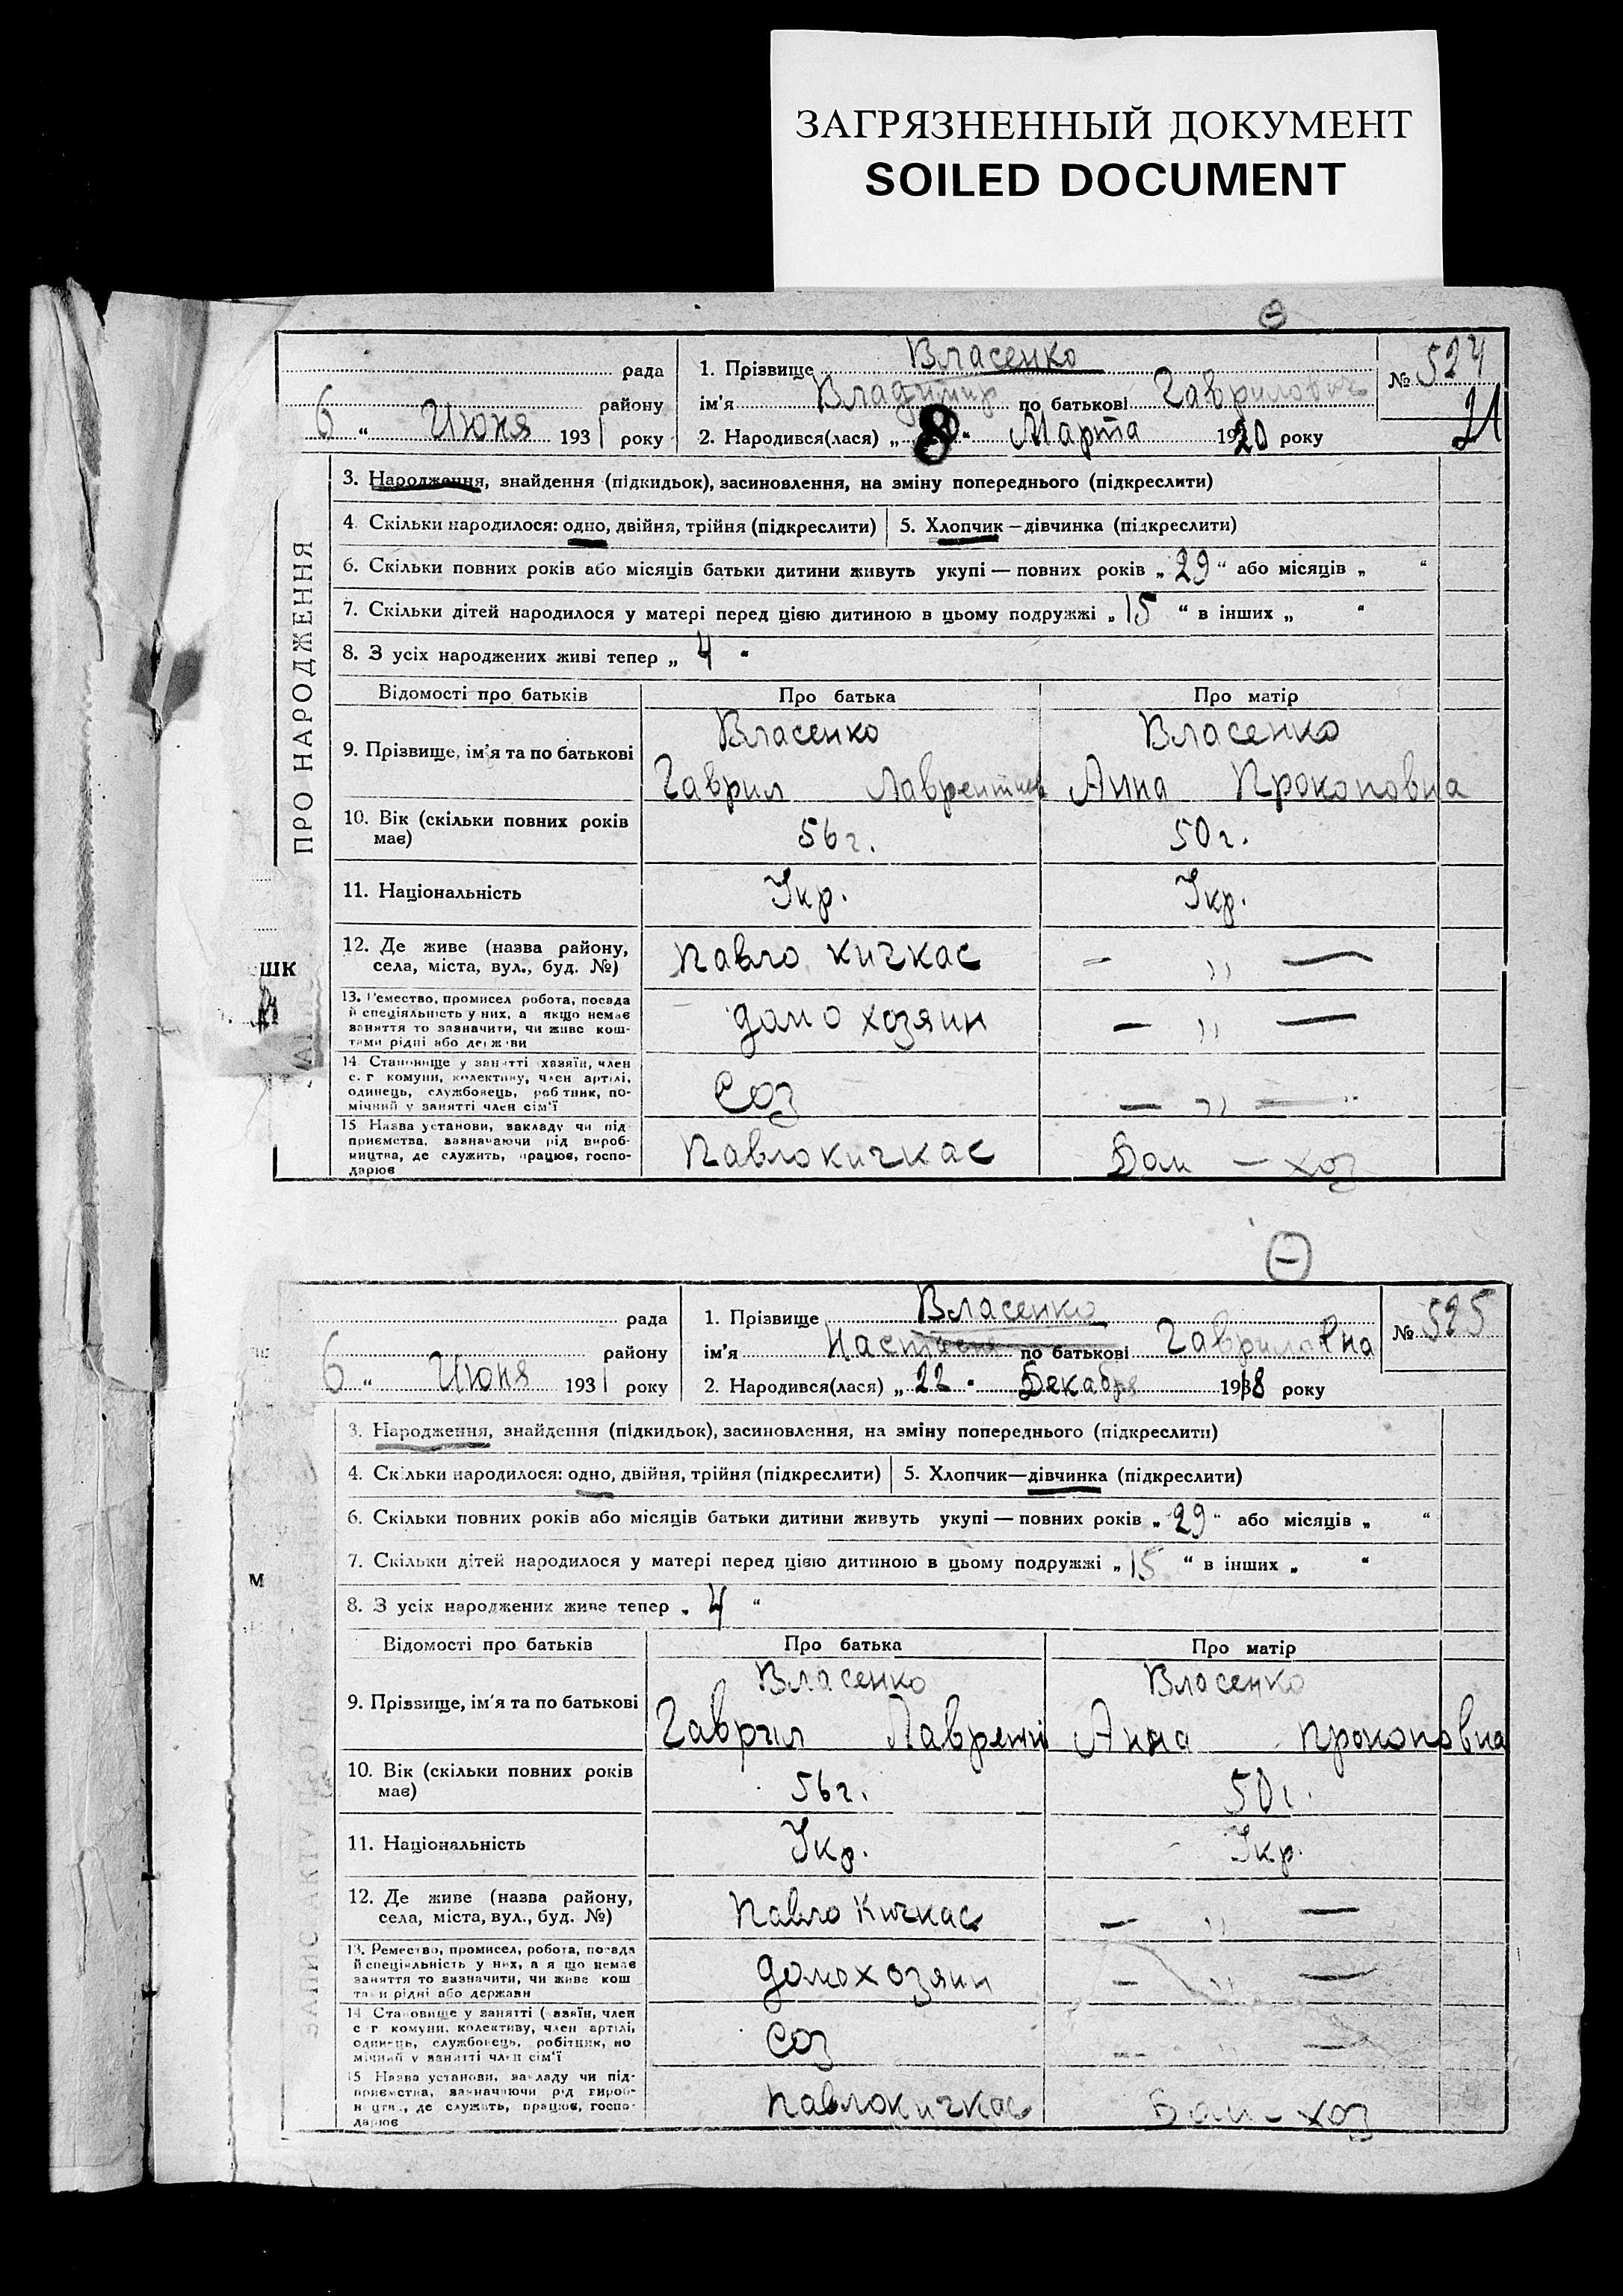 ЗАГРЯЗНЕННЫЙ ДОКУМЕНТ
SOILED DOCUMENT
рада
району
6 “ Июня 1931 року
1. Прізвище Власенко
ім’я Владимир по батькові Гаврилович
2. Народився(лася) „ 8 “ Марта 1920 року
№ 524
21
ПРО НАРОДЖЕННЯ
3. Народження, знайдення (підкидьок), засиновлення, на зміну попереднього (підкреслити)
4. Скільки народилося: одно, двійня, трійня (підкреслити)
5. Хлопчик — дівчинка (підкреслити)
6. Скільки повних років або місяців батьки дитини живуть укупі — повних років „ 29 “ або місяців „ “
7. Скільки дітей народилося у матері перед цією дитиною в цьому подружжі „ 15 “ в інших „ “
8. З усіх народжених живі тепер „ 4 “
Відомості про батьків
Про батька
Про матір
9. Прізвище, ім’я та по батькові
Власенко
Гаврил
Власенко
Анна Прокоповна
10. Вік (скільки повних років
має)
56 г.
50 г.
11. Національність
Укр.
Укр.
12. Де живе (назва району,
села, міста, вул., буд. №)
Павло Кичкас
— „ —
13. Ремество, промисел робота, посада
й спеціяльність у них, а якщо немає
заняття то зазначити, чи живе кош-
тами рідні або держави
домохозяин
— „ —
14. Становище у занятті хазяїн, член
с. г комуни, колективу, член артілі,
одинець, службовець, робітник, по-
мічний у занятті член сім’ї
Соз
— „ —
15 Назва установи, закладу чи під-
приємства, зазначаючи рід вироб-
ництва, де служить, працює, госпо-
дарює
Павлокичкас
Дом — хоз
шк
рада
району
6 “ Июня 1931 року
1. Прізвище Власенко
ім’я Настасия по батькові Гавриловна
2. Народився(лася) „ 22 “ Декабря 1918 року
№ 525
3. Народження, знайдення (підкидьок), засиновлення, на зміну попереднього (підкреслити)
4. Скільки народилося: одно, двійня, трійня (підкреслити)
5. Хлопчик—дівчинка (підкреслити)
6. Скільки повних років або місяців батьки дитини живуть укупі — повних років „ 29 “ або місяців „ “
7. Скільки дітей народилося у матері перед цією дитиною в цьому подружжі „ 15 “ в інших „ “
8. З усіх народжених живе тепер „ 4 “
м
Відомості про батьків
Про батька
Про матір
9. Прізвище, ім’я та по батькові
Власенко
Гаврил
Власенко
Анна Прокоповна
10. Вік (скільки повних років
має)
56 г.
50 г.
11. Національність
Укр.
Укр.
12. Де живе (назва району,
села, міста, вул., буд. №)
Павло Кичкас
— „ —
13. Ремество, промисел, робота, посада
й спеціяльність у них, а якщо немає
заняття то зазначити, чи живе кош
тами рідні або держави
домохозяин
— „ —
14 Становище у занятті (хазяїн, член
с г комуни, колективу, член артілі,
одинець, службовець, робітник, по
мічний у занятті член сім’ї
Соз
— „ —
15 Назва установи, закладу чи під-
приємства, зазначаючи рід вироб-
ництва, де служить, працює, госпо-
дарює
Павлокичкас
Дом - хоз
ЗАПИС АКТУ